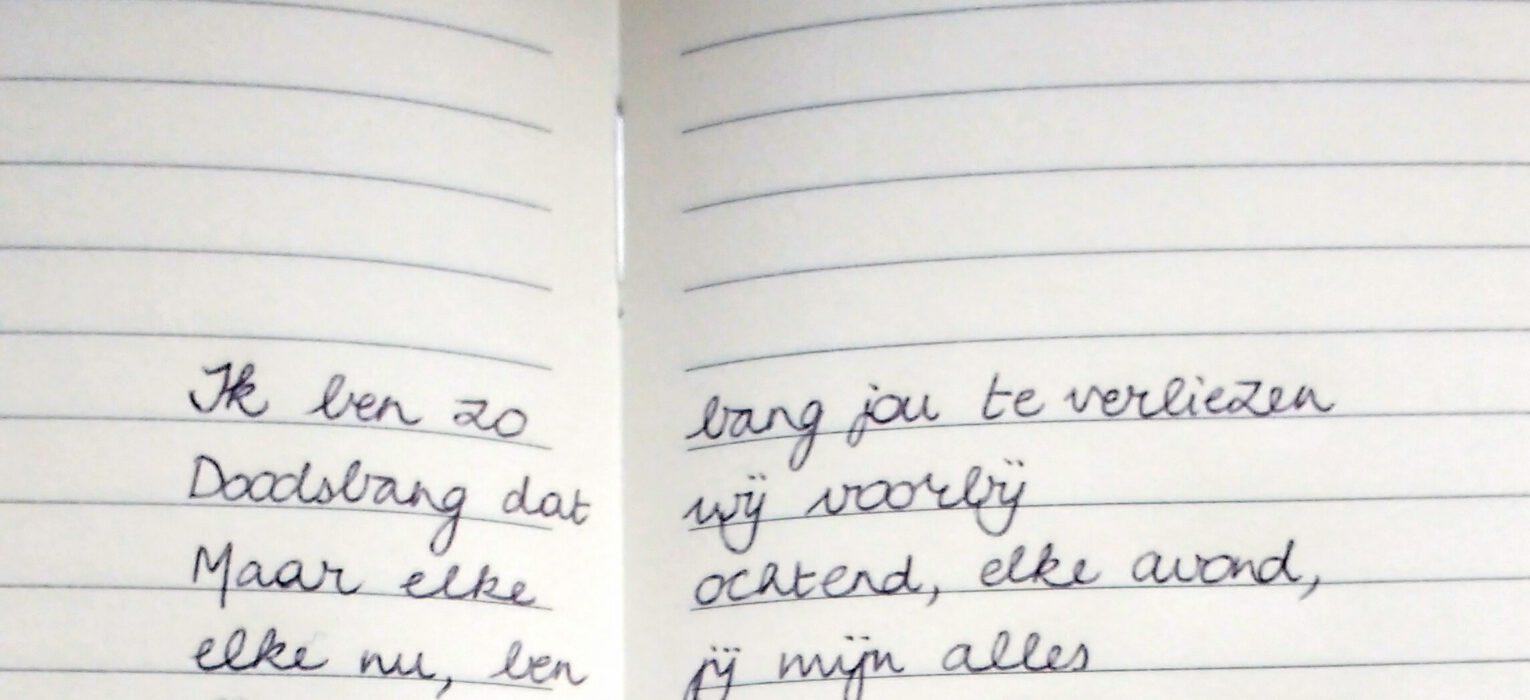 Ik ben zo bang jou te verliezen
Doodsbang dat wij voorbij
Maar elke ochtend, elke avond,
elke nu, ben jij mijn alles